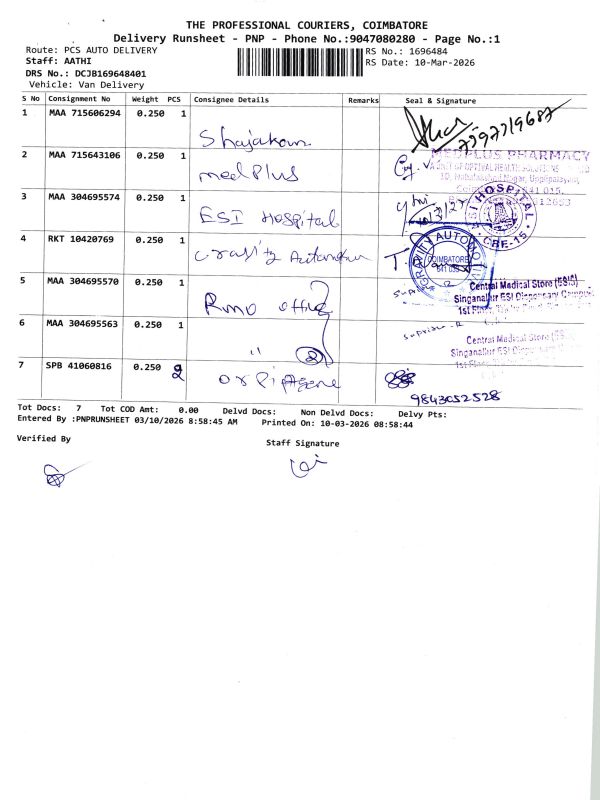 THE PROFESSIONAL COURIERS, COIMBATORE
Delivery Runsheet - PNP - Phone No.:9047080280 - Page No.:1
Route: PCS AUTO DELIVERY
RS No.: 1696484
Staff: AATHI
RS Date: 10-Mar-2026
DRS No.: DCJB169648401
Vehicle: Van Delivery
S No Consignment No Weight PCS Consignee Details Remarks Seal & Signature
1 MAA 715606294 0.250 1
2 MAA 715643106 0.250 1 medplus
MEDPLUS PHARMACY
3 MAA 304695574 0.250 1 ESI Hospital
ESI HOSPITAL CBE-15
4 RKT 10420769 0.250 1
GRAVITY AUTOMOTIVE
COIMBATORE
5 MAA 304695570 0.250 1 RMO office
Central Medical Store (ESIS)
Singanallur ESI Dispensary Campus
1st Floor,
6 MAA 304695563 0.250 1 " 2
Central Medical Store (ESIS)
Singanallur ESI Dispensary
7 SPB 41060816 0.250 2
9843052528
Tot Docs: 7 Tot COD Amt: 0.00 Delvd Docs: Non Delvd Docs: Delvy Pts:
Entered By :PNPRUNSHEET 03/10/2026 8:58:45 AM Printed On: 10-03-2026 08:58:44
Verified By
Staff Signature